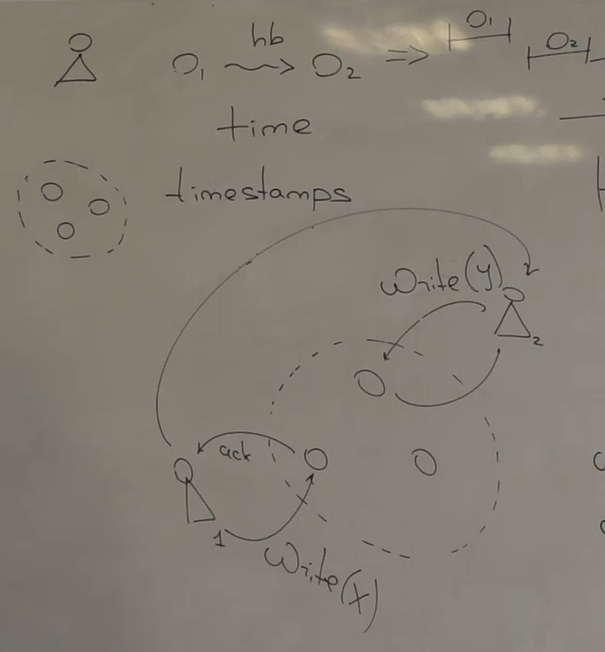 O₁ hb⟿ O₂ ⇒ O₁ O₂
time
timestamps
Write(y)
2
ack
1
Write(x)